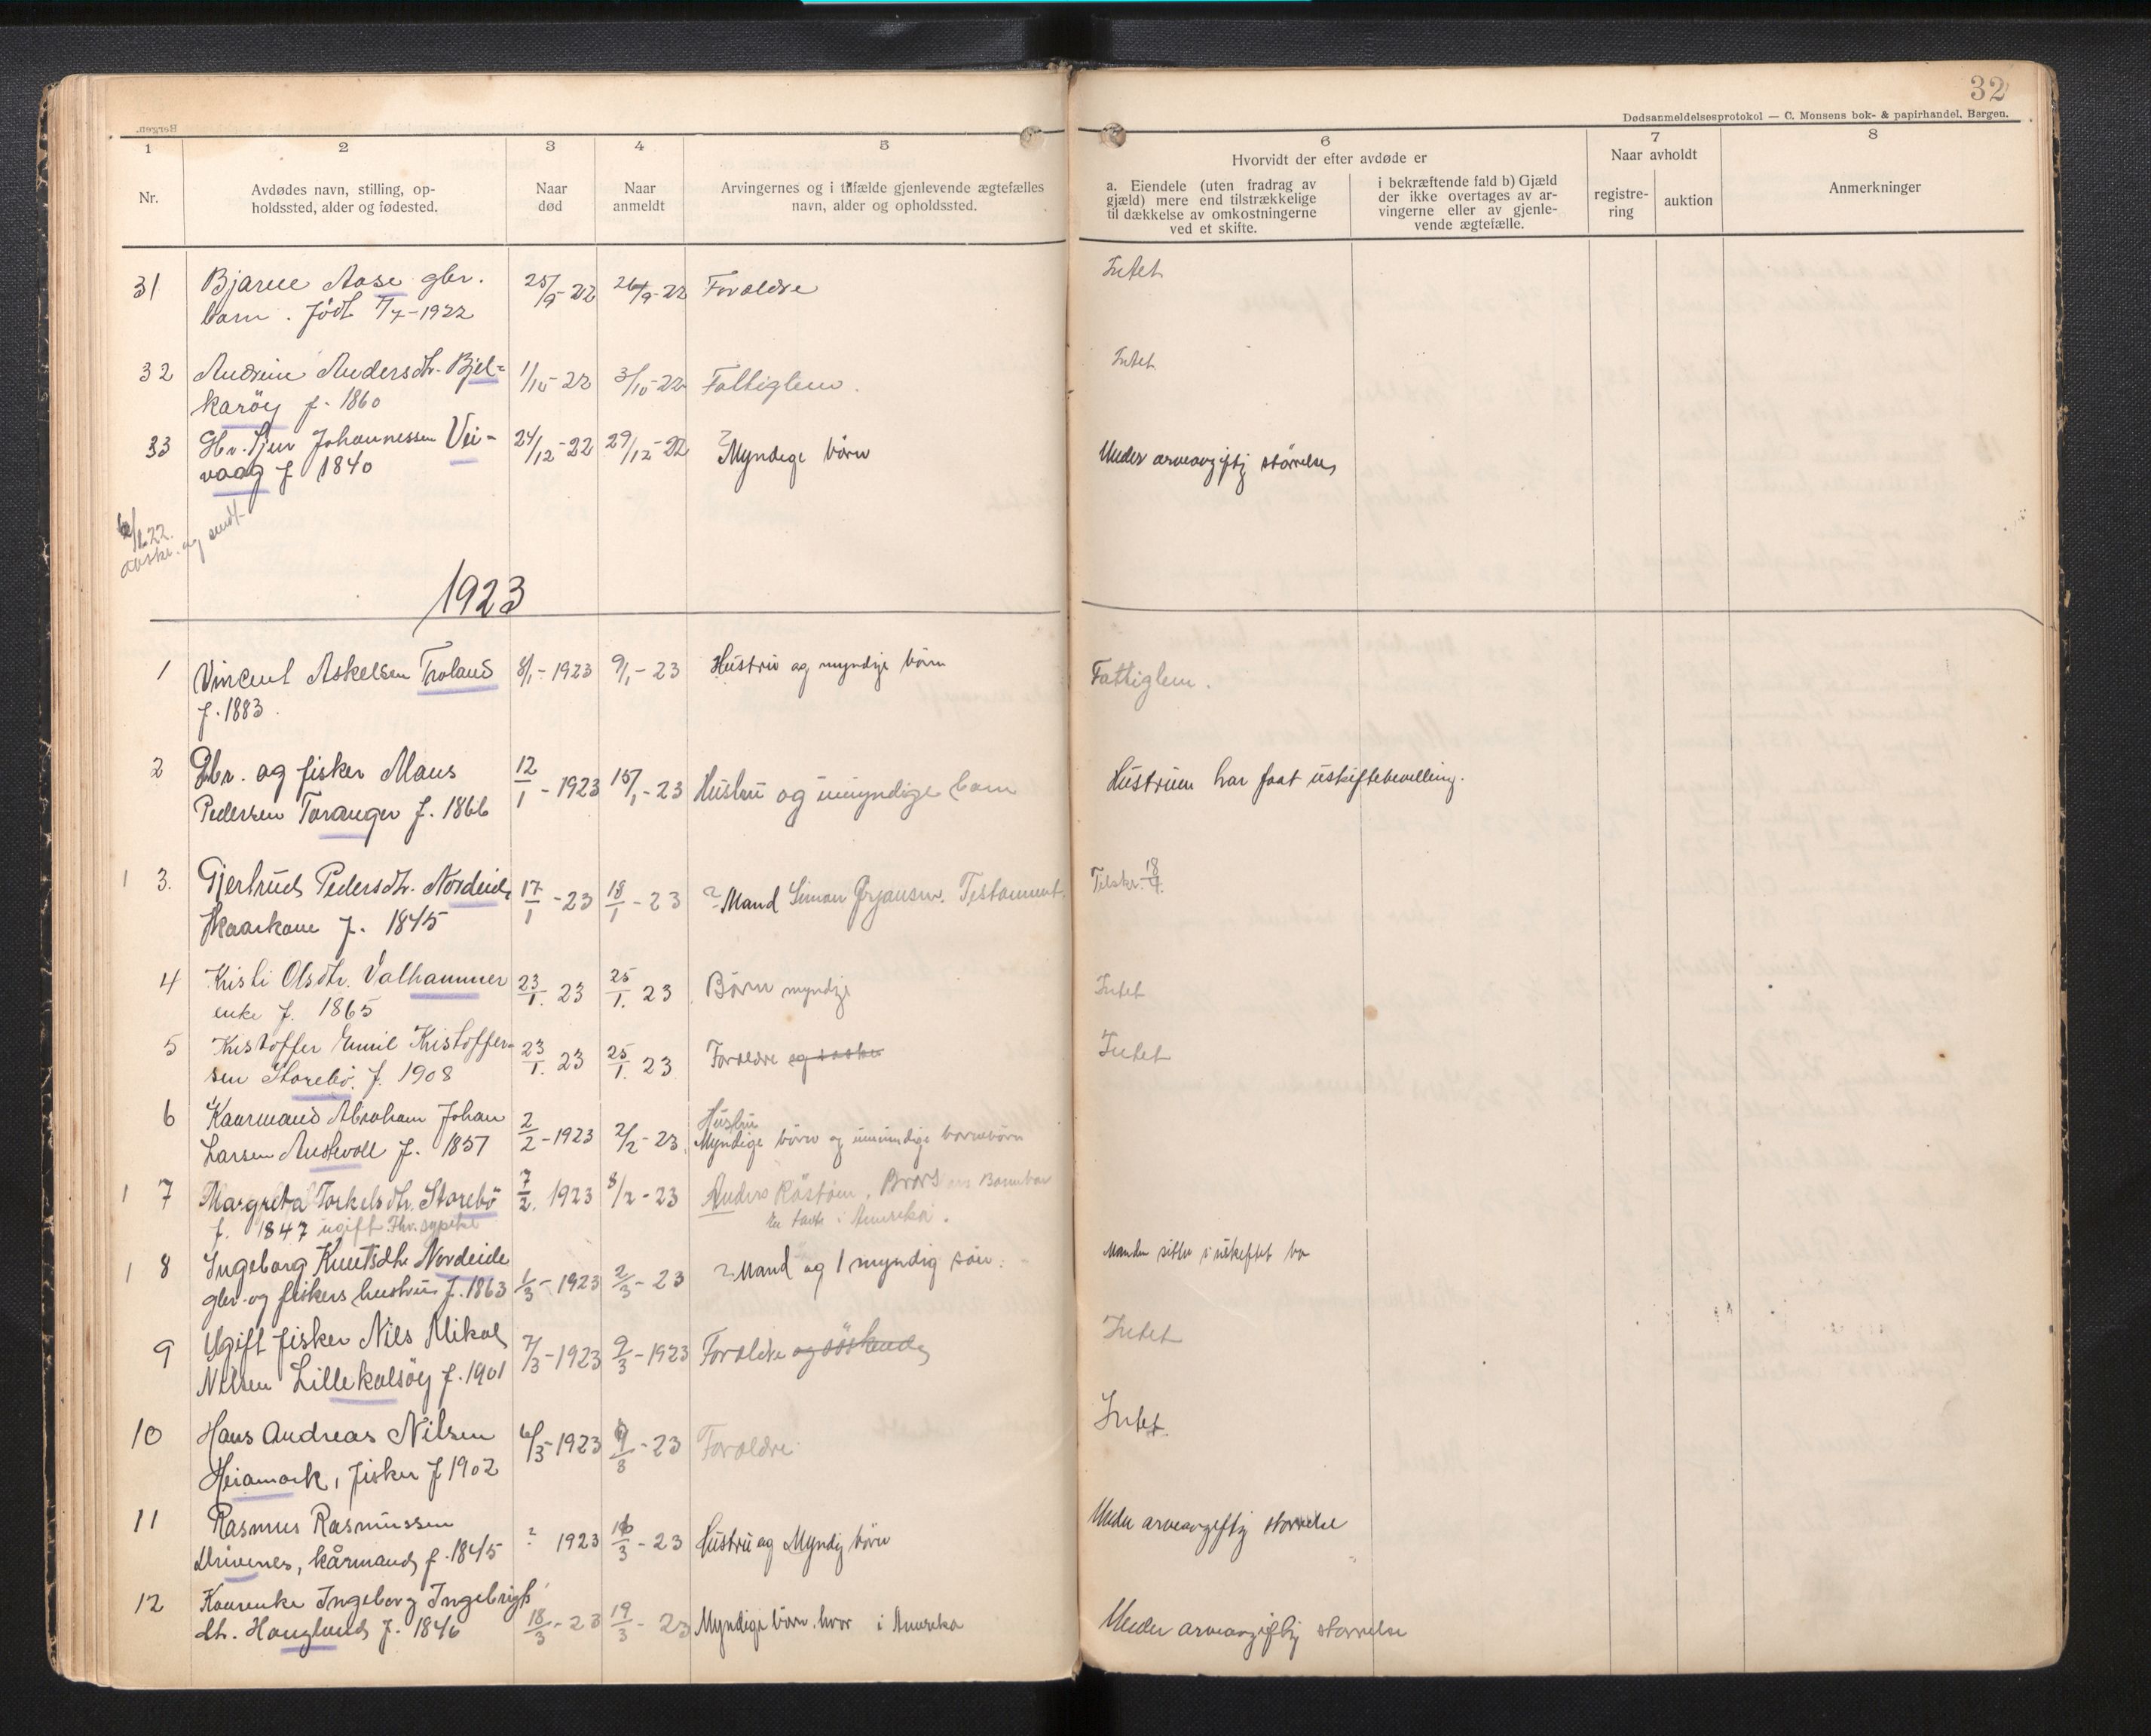 32
Dødsanmeldelsesprotokol — C. Monsens bok- & papirhandel, Bergen.
1 2 3 4 5 6 7 8
Nr.
Avdødes navn, stilling, op-
holdssted, alder og fødested.
Naar
død
Naar
anmeldt
Arvingernes og i tilfælde gjenlevende ægtefælles
navn, alder og opholdssted.
Hvorvidt der efter avdøde er
a. Eiendele (uten fradrag av
gjæld) mere end tilstrækkelige
til dækkelse av omkostningerne
ved et skifte.
i bekræftende fald b) Gjæld
der ikke overtages av ar-
vingerne eller av gjenle-
vende ægtefælle.
Naar avholdt
registre-
ring
auktion
Anmerkninger
31 Bjarne Aase gbr. 25/9-22 26/9-22 Forældre Intet
barn. født 7/7-1922
32 Andrine Andersdtr. Bjel- 1/10-22 3/10-22 Fattiglem. Intet
karöy f. 1860
33 Gbr. Sjur Johannessen Vei- 24/12-22 29/12-22 Myndige börn Under arveavgiftig störrelse
vaag f 1840
avskr. og sendt
1923
1 Vincent Askelsen Troland 8/1-1923 9/1-23 Hustru og myndige börn Fattiglem.
f. 1883.
2 Gbr. og fisker Mons 12/1-1923 15/1-23 Hustru og umyndige barn Hustruen har faat uskiftebevilling.
Pedersen Toranger f. 1866
1 3. Gjertrud Pedersdtr. Nordeide 17/1-23 18/1-23 ? Mand Simon Ørjansen. Testament. Tilskr. 18/4.
kaarkone f. 1845
4 Kristi Olsdtr. Valhammer 23/1. 23 25/1. 23 Börn myndige Intet
enke f. 1865
5 Kristoffer Emil Kristoffer- 23/1. 23 25/1. 23 Forældre Intet
sen Storebö. f. 1908
6 Kaarmand Abraham Johan 2/2-1923 2/2-23 Hustru
Larsen Austevoll f. 1857 Myndige börn og umyndige barnebörn
1 7 Margreta Torkelsdtr. Storebö 7/2. 1923 8/2-23 Anders Röstöen, Brors
f. 1847 ugift i Amerika.
1 8 Ingeborg Knutsdtr Nordeide 1/3-1923 2/3-23 ? Mand og 1 myndig sön. Manden sitter i uskiftet bo
gbr. og fiskers hustru f. 1863
9 Ugift fisker Nils Mikal 7/3-1923 9/3-1923 Forældre og söskende Intet
Nilsen Lillekalsöy f. 1901
10 Hans Andreas Nilsen 6/3-1923 9/3-23 Forældre Intet
Heiamark, fisker f 1902
11 Rasmus Rasmussen ? 1923 16/3-23 Hustru og Myndig börn Under arveavgiftig störrelse
Drivenes, kårmand f. 1845
12 Kaarenke Ingeborg Ingebrigts 18/3-23 19/3-23 Myndige börn. hvor i Amerika Under arveavgiftig störrelse
dt. Haugland f. 1846